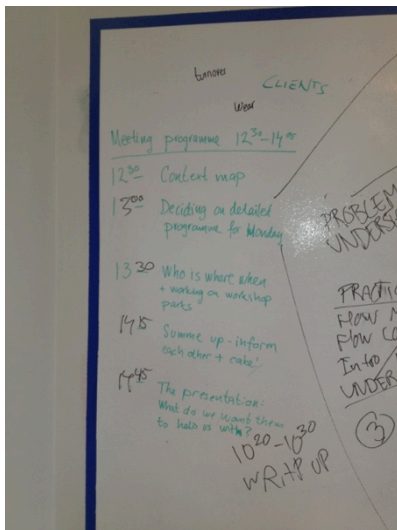 turnover
CLIENTS
Wear
Meeting programme 12³⁰-14⁰⁰
12³⁰ Context map
13⁰⁰ Deciding on detailed
programme for Monday
13 30 Who is where when
+ working on workshop
parts
14 15 Summe up - inform
each other + cake!
14 45 The presentation:
What do we want them
to help us with?
10²⁰-10³⁰
WRAP UP
PROBLEM
UNDERS
PRACTIC
FLOW
FLOW CO
Intro
UNDER
3